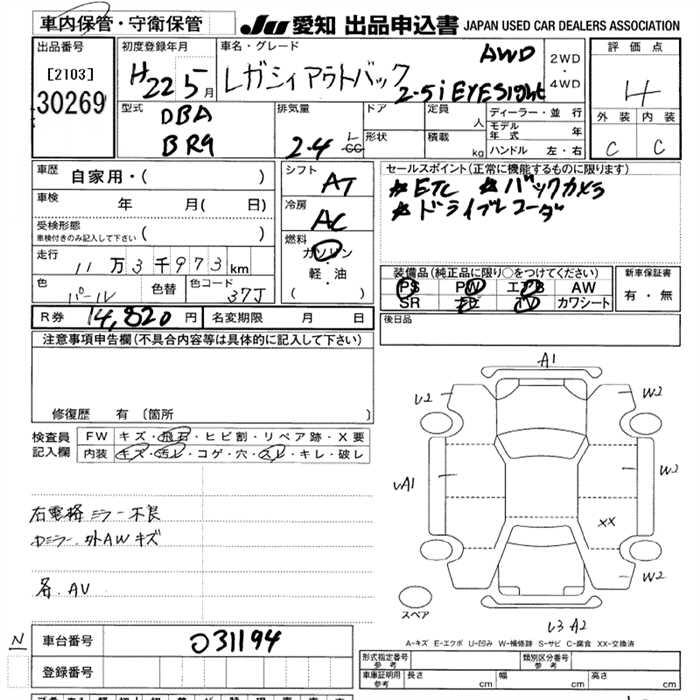 車内保管・守衛保管
JU 愛知 出品申込書 JAPAN USED CAR DEALERS ASSOCIATION
出品番号
[2103]
30269
初度登録年月
H22 5月
車名・グレード
レガシィアウトバック
AWD
2.5i EYESight
2WD
・
4WD
評価点
4
外装 内装
C C
型式
DBA
BR9
排気量
2.4 L
-CC
ドア
形状
定員
人
積載
kg
ディーラー・並行
モデル年式 年
ハンドル 左・右
車歴
自家用・( )
車検
年 月( 日)
受検形態
車検付きのみ記入して下さい ( )
走行
11万3千973km
色
パール
色替
色コード
37J
シフト
AT
冷房
AC
燃料
ガソリン
・
軽・油
( )
セールスポイント(正常に機能するものに限ります)
☆ETC ☆バックカメラ
☆ドライブレコーダ
装備品(純正品に限り○をつけてください)
PS PW エアB AW
SR ナビ TV カワシート
新車保証書
有・無
R券 14,820円 名変期限 月 日
後日品
注意事項申告欄(不具合内容等は具体的に記入して下さい)
修復歴 有〔箇所 〕
検査員
記入欄
FW キズ・飛石・ヒビ割・リペア跡・X要
内装 キズ・汚レ・コゲ・穴・スレ・キレ・破レ
右電格ミラー不良
カミラー.外AWキズ
各.AU
A1
U2
W2
UA1
W2
XX
W2
スペア
U3 A2
A-キズ E-エクボ U-凹み W-補修跡 S-サビ C-腐食 XX-交換済
N
車台番号 031194
登録番号
形式指定番号
参考
類別区分番号
参考
車庫証明用
参考
長さ cm 幅 cm 高さ cm